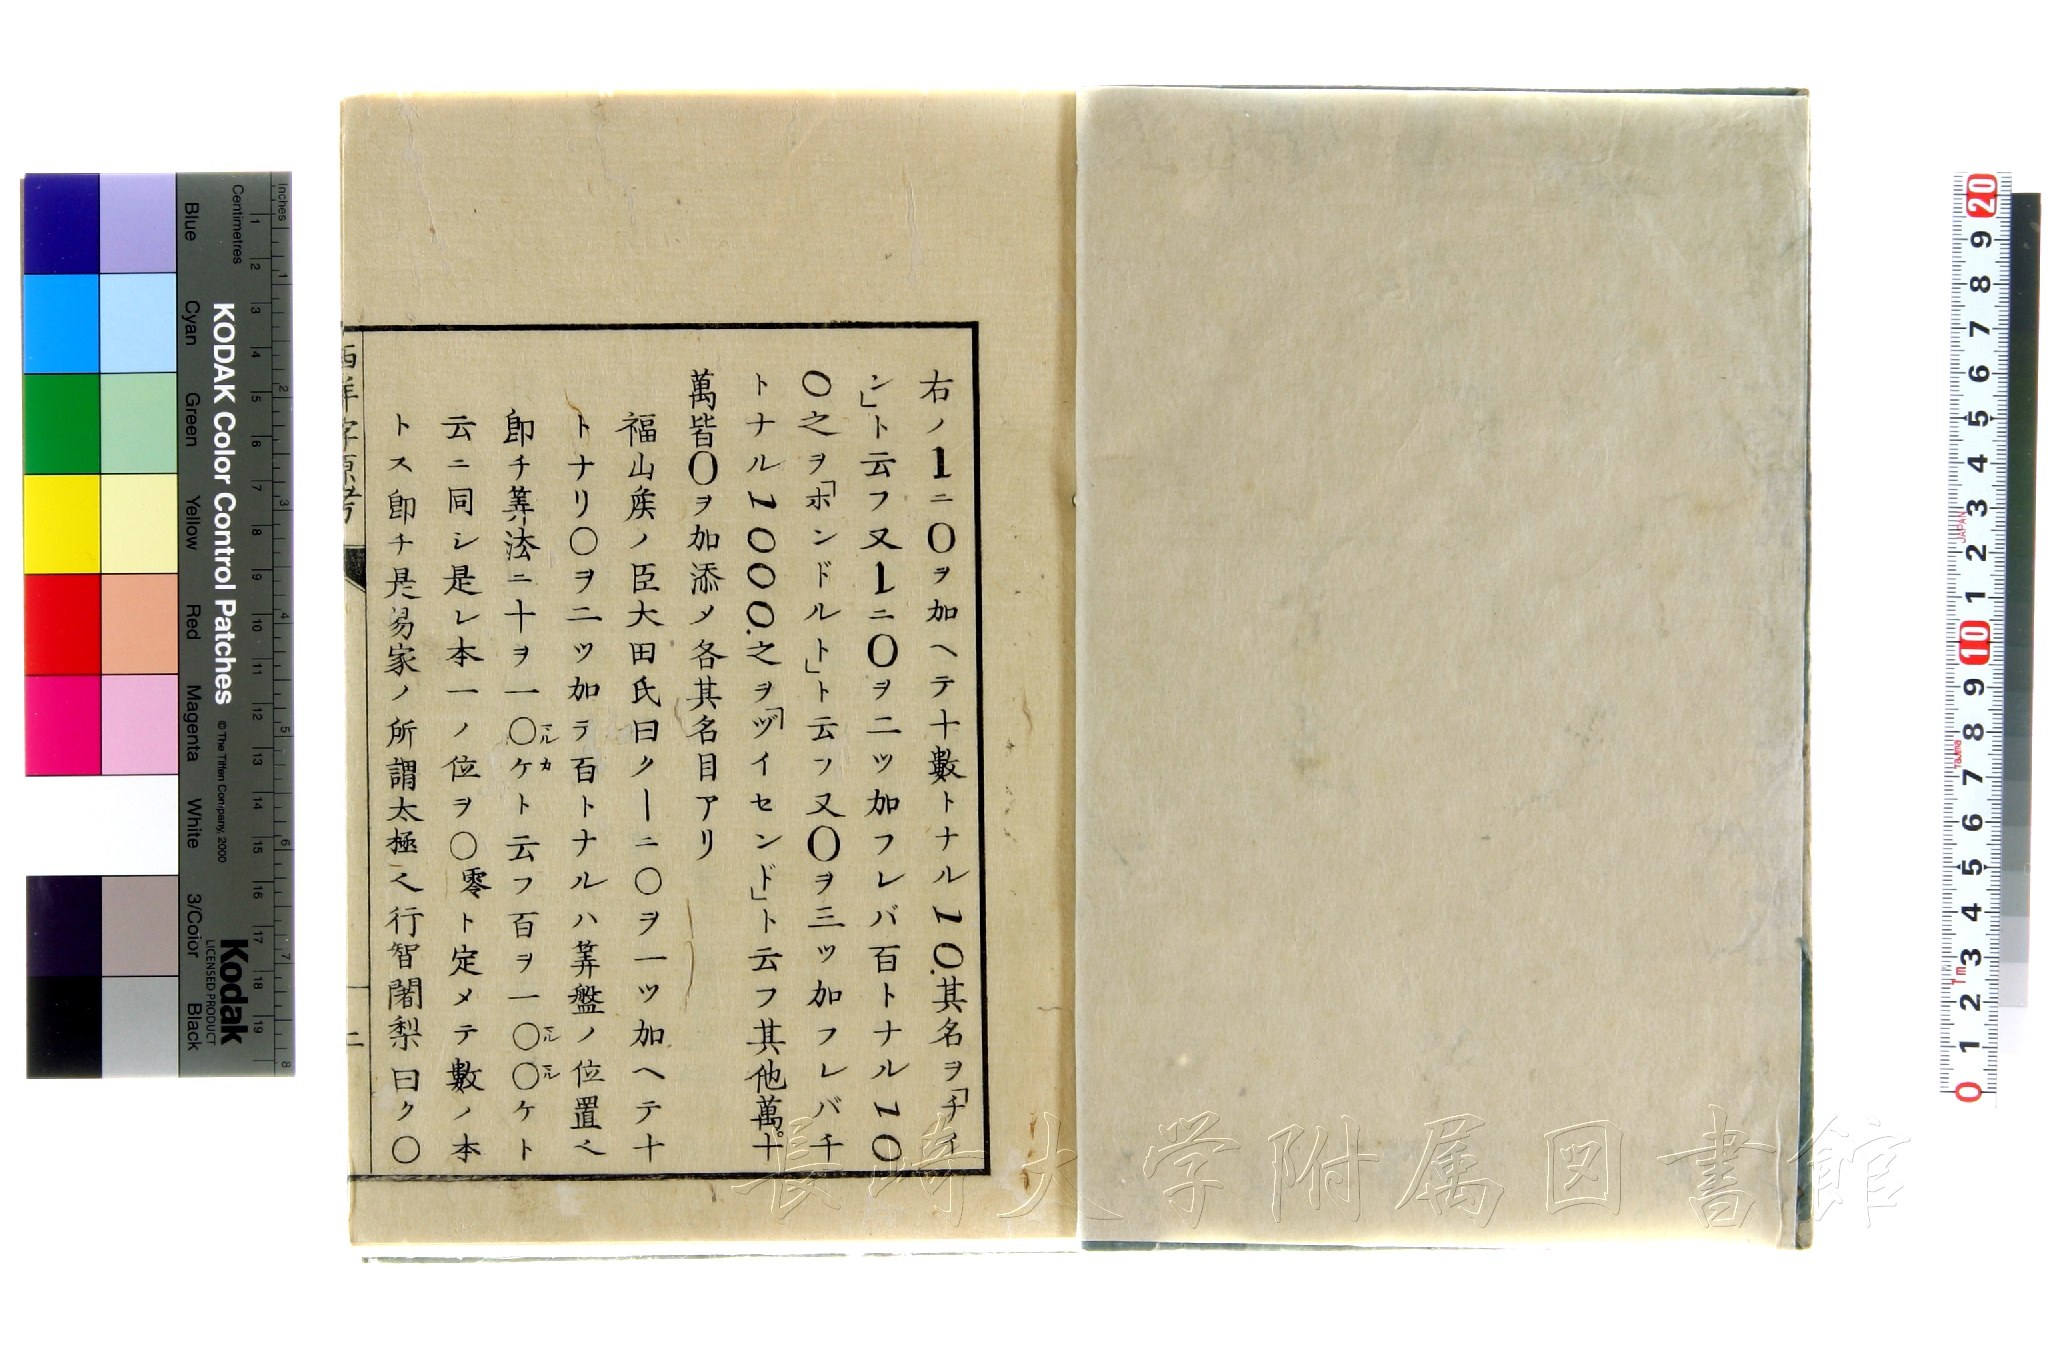 右ノ1ニ0ヲ加ヘテ十數トナル10.其名ヲ「チイ
ン」ト云フ又1ニ0ヲ二ツ加フレバ百トナル10
0之ヲ「ホンドルト」ト云フ又0ヲ三ツ加フレバ千
トナル1000.之ヲ「ヅイセンド」ト云フ其他萬。十
萬皆0ヲ加添メ各其名目アリ
福山矦ノ臣大田氏曰ク丨ニ〇ヲ一ツ加ヘテ十
トナリ〇ヲ二ツ加テ百トナルハ筭盤ノ位置ヘ
卽チ筭法ニ十ヲ一〇ケト云フ百ヲ一〇〇ケト
云ニ同シ是レ本一ノ位ヲ〇零ト定メテ數ノ本
トス卽チ是易家ノ所謂太極ヘ行智闍梨曰ク〇
西洋字原考
二
長崎大学附属図書館
KODAK Color Control Patches
© The Tiffen Company, 2000
Kodak
LICENSED PRODUCT
Inches
Centimetres
1 2 3 4 5 6 7 8 9 10 11 12 13 14 15 16 17 18 19
1 2 3 4 5 6 7 8
Blue
Cyan
Green
Yellow
Red
Magenta
White
3/Color
Black
20 9 8 7 6 5 4 3 2 1 10 9 8 7 6 5 4 3 2 1 0
JAPAN
Tajima